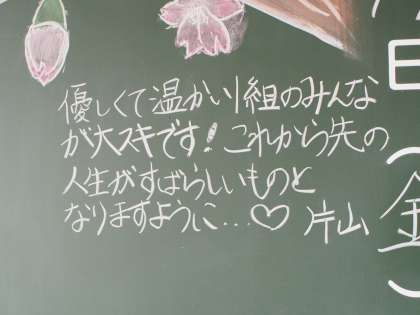 優しくて温かい1組のみんな
が大スキです！これから先の
人生がすばらしいものと
なりますように…♡ 片山
日(金)